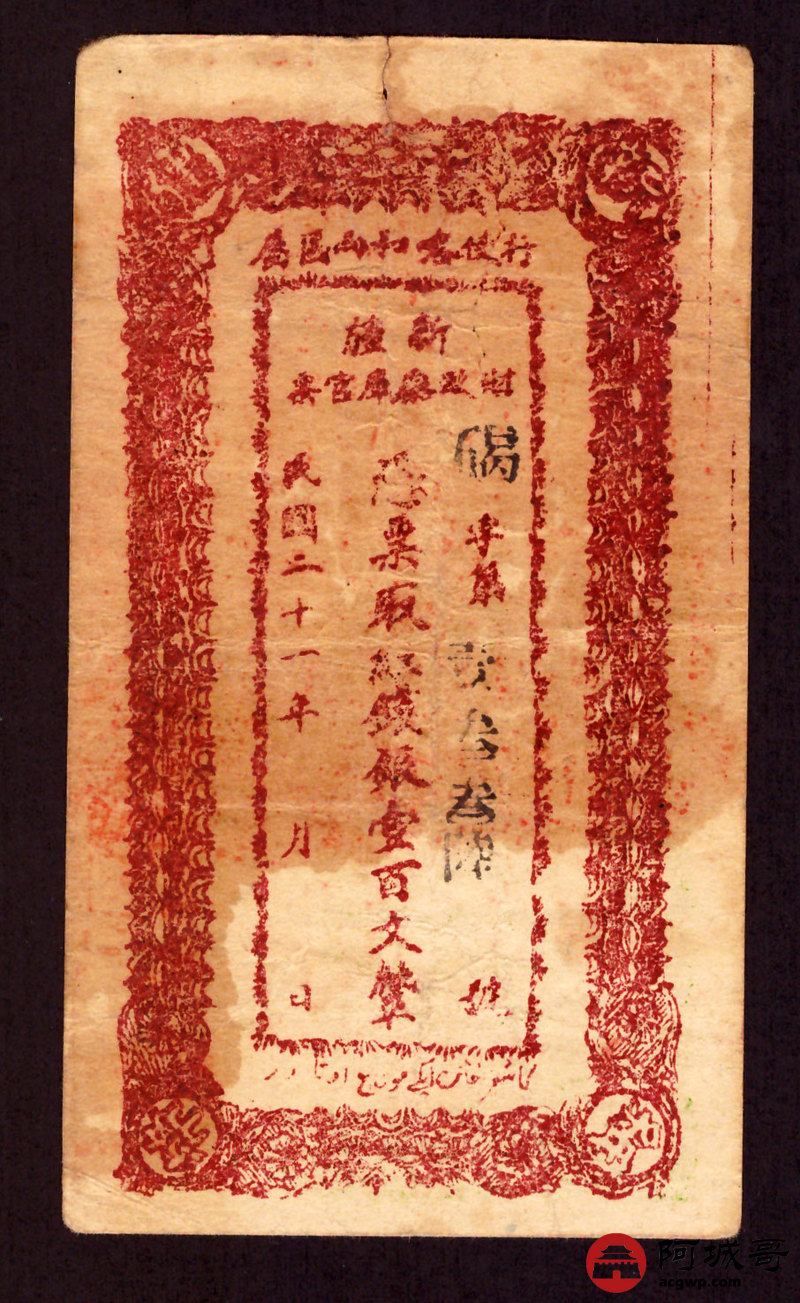 行使喀和两區屬
新疆
財政廳庫官票
字第 叁叁陸 號
憑票取紅錢銀壹百文整
民國二十一年 月 日
阿城哥
acgwp.com